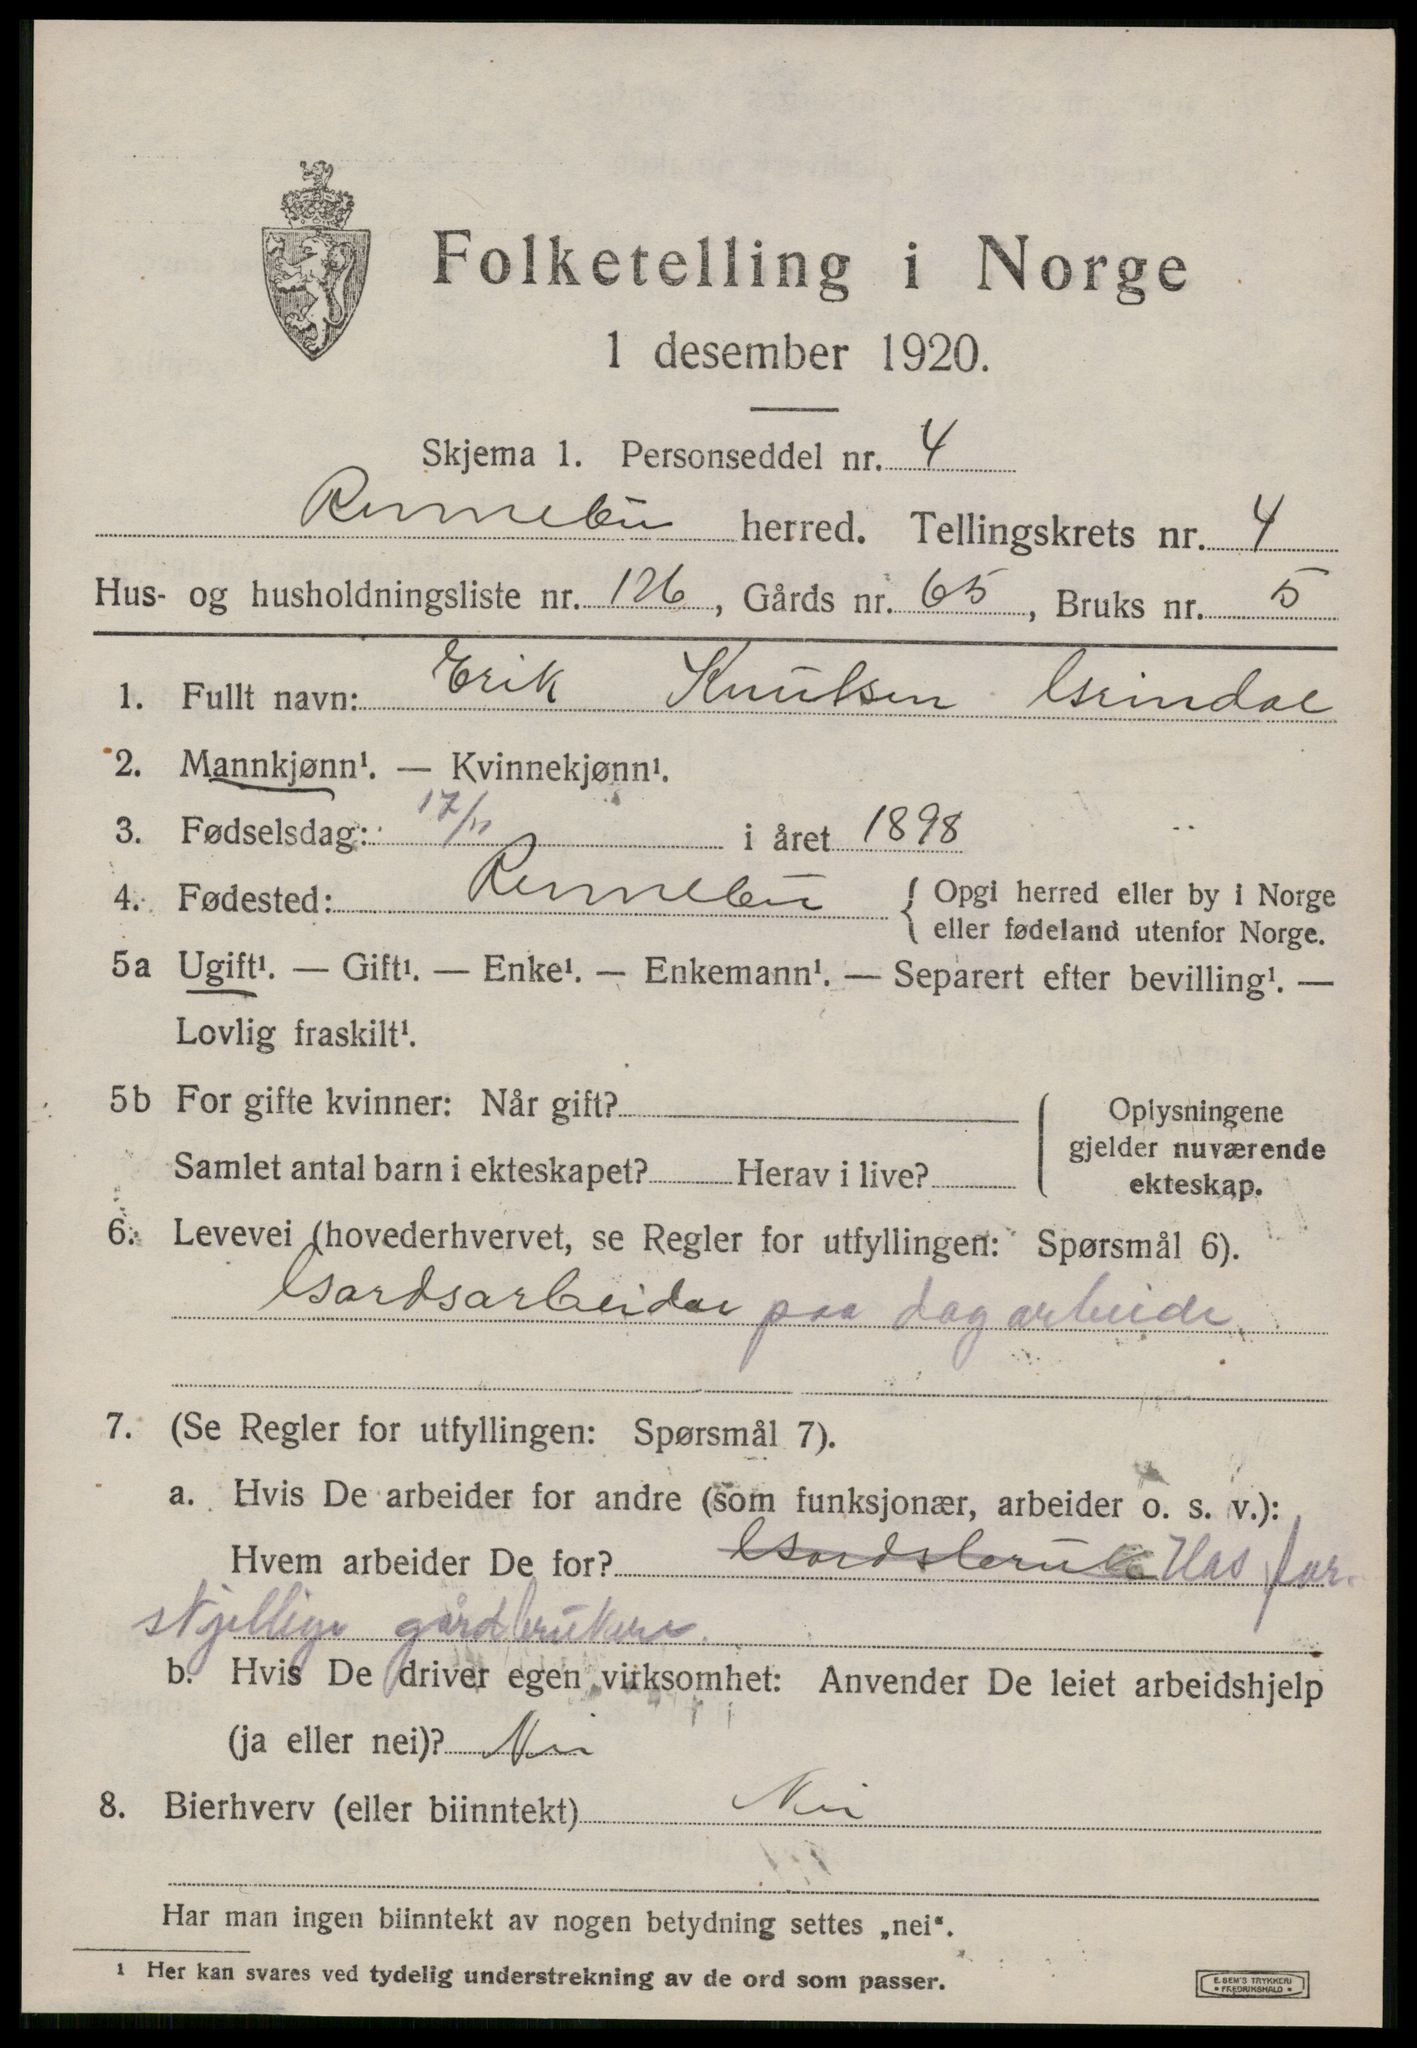 Folketelling i Norge
1 desember 1920.
Skjema 1. Personseddel nr. 4
Rennebu herred. Tellingskrets nr. 4
Hus- og husholdningsliste nr. 126, Gårds nr. 65, Bruks nr. 5
1. Fullt navn: Erik Knutsen Grindal
2. Mannkjønn¹. — Kvinnekjønn¹.
3. Fødselsdag: 17/11 i året 1898
4. Fødested: Rennebu { Opgi herred eller by i Norge
eller fødeland utenfor Norge.
5a Ugift¹. — Gift¹. — Enke¹. — Enkemann¹. — Separert efter bevilling¹. —
Lovlig fraskilt¹.
5b For gifte kvinner: Når gift?
Samlet antal barn i ekteskapet? Herav i live?
Oplysningene
gjelder nuværende
ekteskap.
6. Levevei (hovederhvervet, se Regler for utfyllingen: Spørsmål 6).
Gardsarbeider paa dagarbeide
7. (Se Regler for utfyllingen: Spørsmål 7).
a. Hvis De arbeider for andre (som funksjonær, arbeider o. s. v.):
Hvem arbeider De for? Gardsbruk Hos for-
skjellige gårdbrukere.
b. Hvis De driver egen virksomhet: Anvender De leiet arbeidshjelp
(ja eller nei)? Nei
8. Bierhverv (eller biinntekt) Nei
Har man ingen biinntekt av nogen betydning settes „nei“.
¹ Her kan svares ved tydelig understrekning av de ord som passer.
E. SEM'S TRYKKERI
• FREDRIKSHALD •